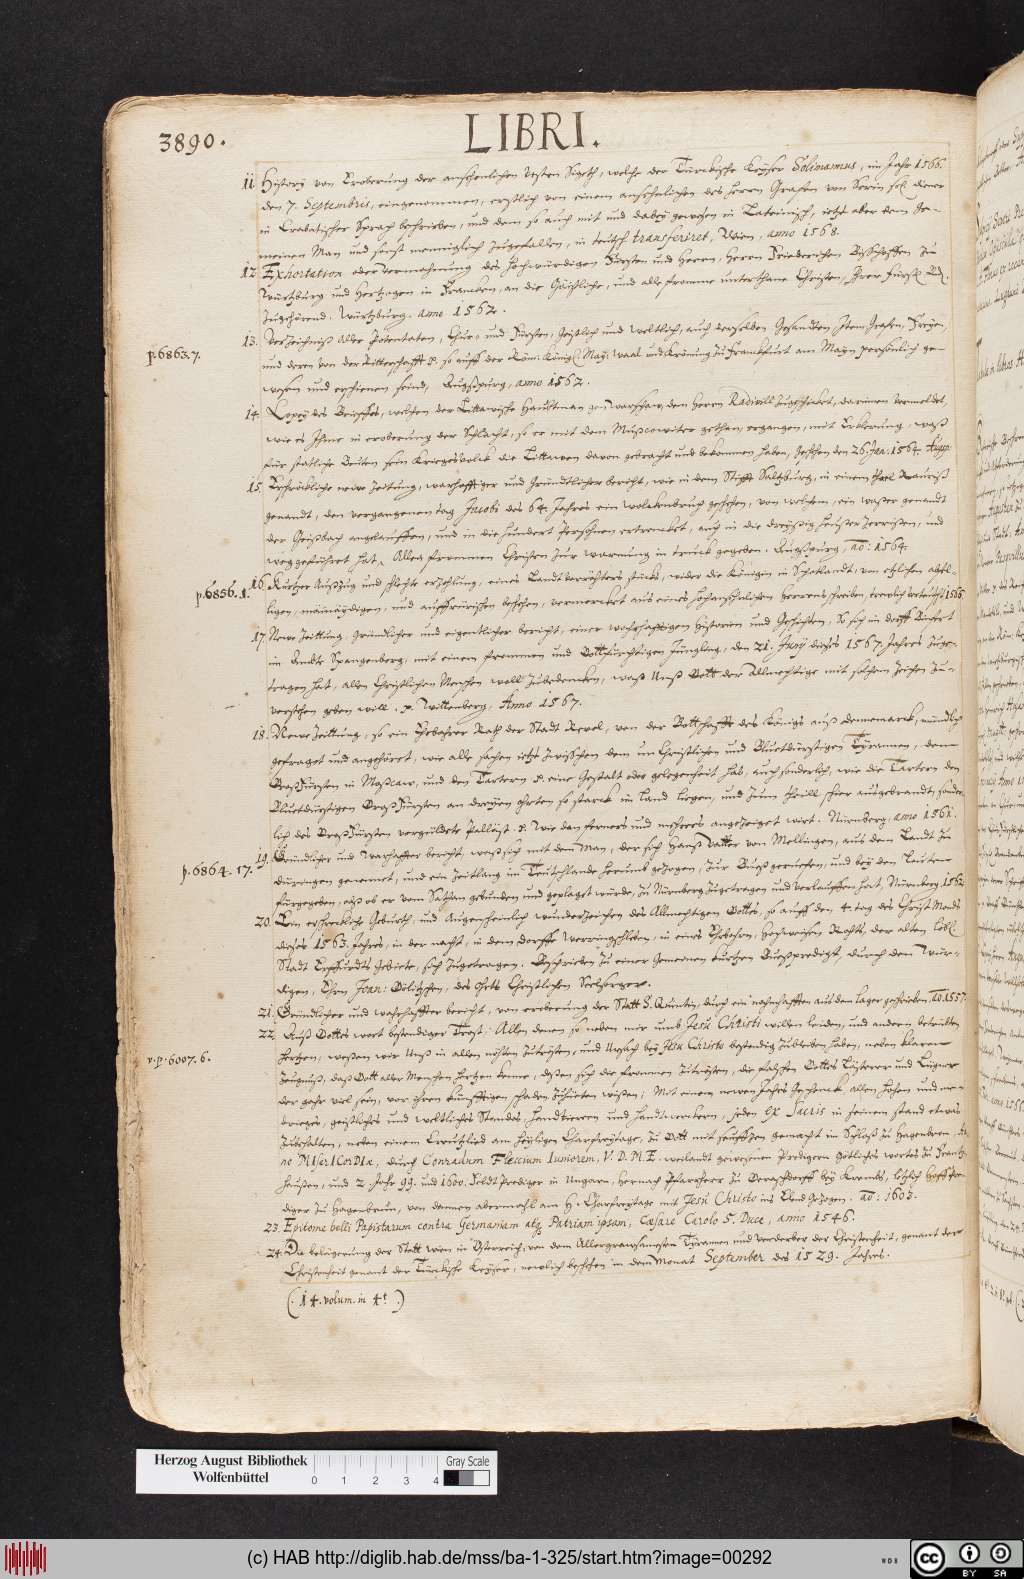 3890.
LIBRI.
11 History von Eroberung der ansehenlichen Vesten Sigeth, welche der Türckische Keyser Solimannus, im Jahr 1566.
den 7. Septembris, eingenommen, erstlich von einem ansehnlichen des Herrn Grafen von Serin sel. diener
in Crabatischer Sprach beschrieben, und dem so auch mit und dabey gewesen in Lateinisch, jetzt aber dem Ge-
meinen Man und sonst menniglich zugefallen, in teutsch transferiret, Wien, anno 1568.
12. Exhortation oder vermahnung des Hochwürdigen Fürsten und Herrn, Herrn Friederichen Bisschoffen zu
Würtzburg und Hertzogen in Francken, an die Geistliche, und alle fromme unterthane Christen,
zugehörend. Würtzburg. anno 1562.
13. Verzeichniß aller Potentaten, Chur- und Fürsten, Geistlich und Weltlich, auch derselben Gesandten, Item Grafen, Freyen,
p. 6863.7.
und deren von der Ritterschafft so auff der Röm. Königl. May. Waal und Krönung zu Franckfurt am Mayn persönlich ge-
wesen und erschienen seind, Augspurg, anno 1562.
14. Copey des Brieffes, welchen der Littawische Hauptman zu Warschaw, dem Herrn Radivill zugeschickt, darinnen vermeldet,
wie es Ihme in eroberung der Schlacht, so er mit dem Mußcowiter gethan, ergangen, mit Erklerung, waß
für stattliche Beuten sein Kriegesvolck die Littawen davon gebracht und bekommen haben, geschehen den 26. Jan: 1564.
15. Erschröckliche newe Zeitung, warhafftiger und gründtlicher bericht, wie in dem Stifft Saltzburg, in einem thael Rauriß
genandt, den vergangenen tag Jacobi des 64. Jahres ein wolckenbruch geschehen, von welchem, ein wasser genandt
der Geißbach angelauffen, und in die hundert Persohnen ertrencket, auch in die dreyssig Heuser zerrissen, und
weggeführet hat, Allen frommen Christen zur warnung in truck gegeben. Augspurg, ao: 1564.
p. 6856.1.
16. Kurtzer Außzug und schlechte erzehlung, eines Landtverrähters stücks, wider die Königin in Schotlandt, von etzlichen abfel-
ligen, mainaydigen, und auffrürischen beschehen, vermercket aus eines hochansehnlichen Herrens schreiben, trewlich verteutscht 1566.
17. Newe Zeittung, gründlicher und eigentlicher bericht, einer wahrhafftigen Historien und Geschichten, So sich im dorff Rinfert
im Ambte Spangenberg, mit einem frommen und Gottfürchtigen Jüngling, den 21. Juny dieses 1567. Jahres zuge-
tragen hat, allen Christlichen Menschen woll zubedencken, waß Unß Gott der Allmechtige mit solchem zeichen zu-
verstehen geben will. Wittenberg, Anno 1567.
18. Newe Zeittung, so ein Erbahrer Rath der Stadt Revel, von der Bottschafft des Königs auß Dennemarck, mündtlich
gefraget und angehöret, wie alle sachen jetzt zwischen dem unChristlichen und Bluetdürstigen Tyrannen, dem
GroßFürsten in Moßcaw, und den Tartern eine Gestalt oder gelegenheit hab, auch sonderlich, wie die Tartern den
Bluetdürstigen GroßFürsten an dreyen ohrten so starck in Land liegen, und zum theill schier ausgebrandt, sonder-
lich des GroßFürsten vergüldete Pallast. Wie dan ferners und mehrers angezeiget wirt. Nürnberg, anno 1561.
p. 6864.17.
19. Gründlicher und Warhaffter bericht, waß sich mit dem Man, der sich Hanß Vatter von Mellingen, aus dem Landt zu
Düringen genennet, und ein zeitlang im Teutschlande herumb gezogen, zur Bueß geruefen, und bey den Leuten
fürgegeben, alß ob er vom Sathan gebunden und geplaget würde, zu Nürnberg zugetragen und verlauffen hat, Nürnberg 1562.
20. Ein erschrecklich Geburth, und Augenscheinlich wunderzeichen des Allmechtigen Gottes, so auff den 4. tag des Christ Monds
dieses 1563. Jahres, in der nacht, in dem dorffe Werringschleben, in eines Erbahrn, Hochweisen Rahts, der alten löbl.
Stadt Erffurdts gebiete, sich zugetragen. Beschrieben zu einer Gemeenen kurtzen Bueßpredigt, durch den Wür-
digen, Ehrn Joan: Gölitzschen, des Ohrts Christlichen Seelsorger.
21. Gründlicher und wahrhaffter bericht, von eroberung der Statt S. Quintin, durch ein nahmhafften aus dem lager geschrieben, ao. 1557.
22. Auß Gottes wort bestendiger Trost. Allen denen so neben mir umb Jesu Christi willen leiden, und anderen betrübten
v. p. 6007.6.
Hertzen, wessen wir Unß in allen nöhten zutrösten, und Ursach bey Jesu Christo bestendig zubleiben haben, neben klarem
Zeugnuß, daß Gott aller Menschen Hertzen kenne, dessen sich die frommen zutrösten, die falschen Gottes Lästerer und Lügner
der gahr viel sein, vor ihren künfftigen schaden zuhüeten wissen; Mit einem newen Jahrs Geschenck, allen hohen und ni-
drigen, geistliches und weltliches Standes, Handtieren und Handtwerckern, jeden ex sacris in seinen stand etwas
zubehalten, neben einem Creutzlied am heyligen Charfreytage, zu Gott mit seufftzen gemacht im Schloß zu Hagenbrun, An-
no MIserICorDIæ, durch Conradum Fleccium Iuniorem, V. D. M. E. weilandt gewesenen Predigern Götliches wortes zu Franck-
hausen, und 2 Jahr 99. und 1600. Feldt Prediger in Ungarn, hernach Pfarrherr zu Gerasdorff bey Krembs, letzlich Hoff Pre-
diger zu Hagenbrun, von dannen abermahls am H. Charfreytage mit Jesu Christo ins Elend gezogen. ao: 1603.
23. Epitome belli Papistarum contra Germaniam atq. Patriam ipsam, Cæsare Carolo 5. Duce, anno 1546.
24. Die belägerung der Statt Wien in Österreich, von dem Allergrausamesten Tyrannen und verderber der Christenheit, genant der
Christenheit genant der Türckische Keyser, newlich beschehen in dem Monat September des 1529. Jahres.
(. 14. volum. in 4t .)
Herzog August Bibliothek
Wolfenbüttel
0 1 2 3 4
Gray Scale
(c) HAB http://diglib.hab.de/mss/ba-1-325/start.htm?image=00292
WDB
cc
BY SA